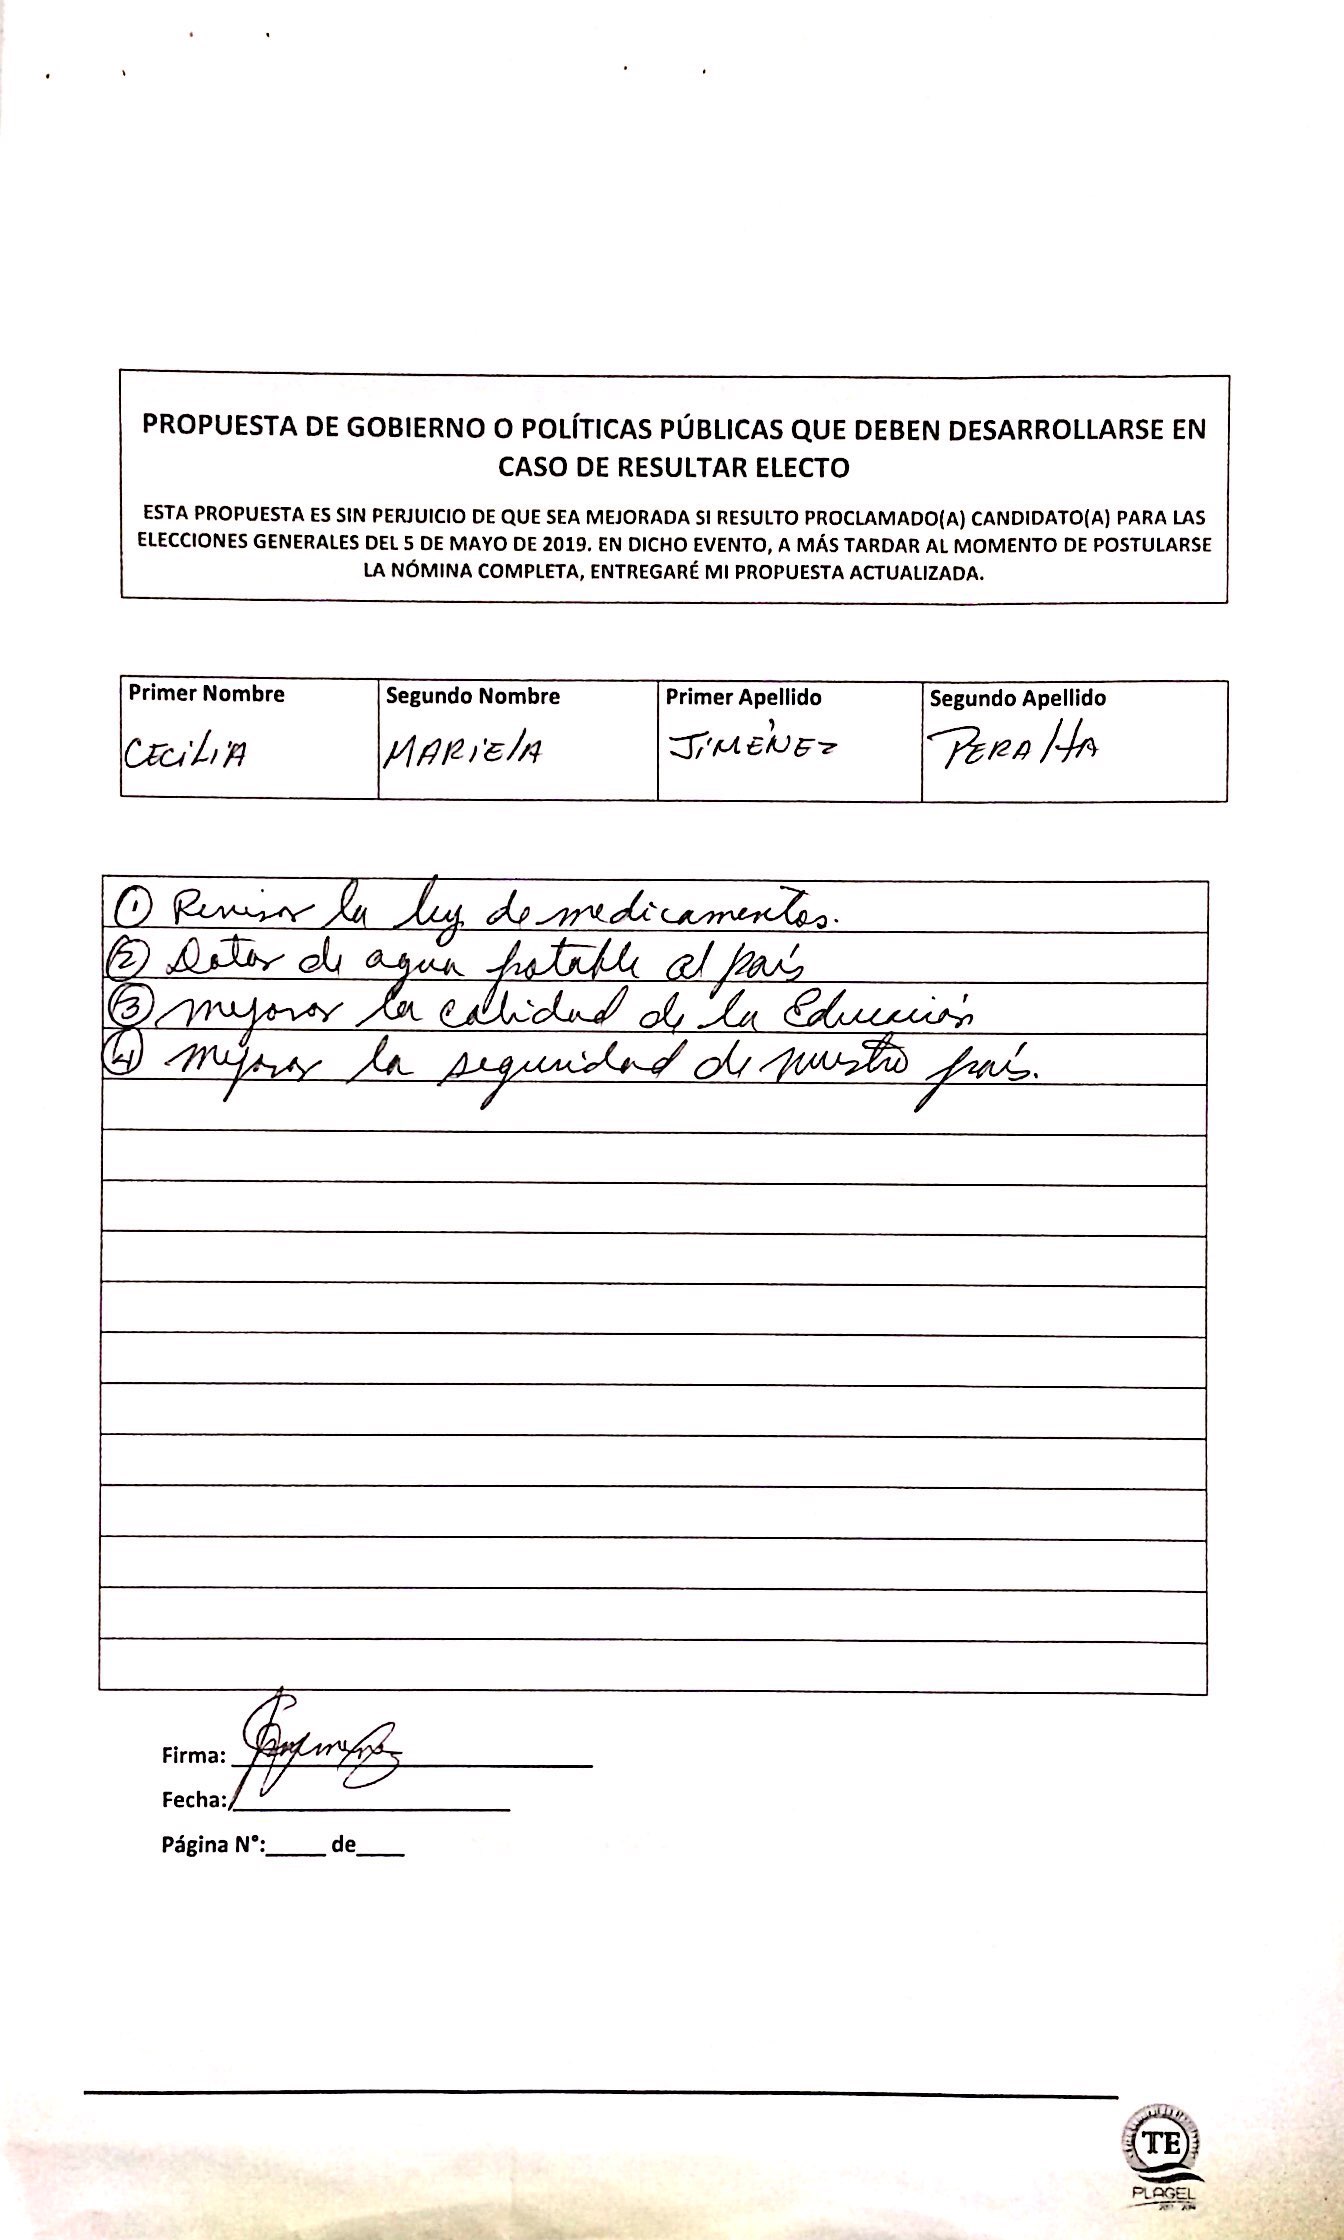 PROPUESTA DE GOBIERNO O POLÍTICAS PÚBLICAS QUE DEBEN DESARROLLARSE EN
CASO DE RESULTAR ELECTO
ESTA PROPUESTA ES SIN PERJUICIO DE QUE SEA MEJORADA SI RESULTO PROCLAMADO(A) CANDIDATO(A) PARA LAS
ELECCIONES GENERALES DEL 5 DE MAYO DE 2019. EN DICHO EVENTO, A MÁS TARDAR AL MOMENTO DE POSTULARSE
LA NÓMINA COMPLETA, ENTREGARÉ MI PROPUESTA ACTUALIZADA.
Primer Nombre Segundo Nombre Primer Apellido Segundo Apellido
CECILIA MARIELA JIMÉNEZ PERALTA
① Revisar la ley de medicamentos.
② Dotar de agua potable al país
③ mejorar la calidad de la Educación
④ mejorar la seguridad de nuestro país.
Firma:
Fecha:
Página N°:_____ de____
TE
PLAGEL